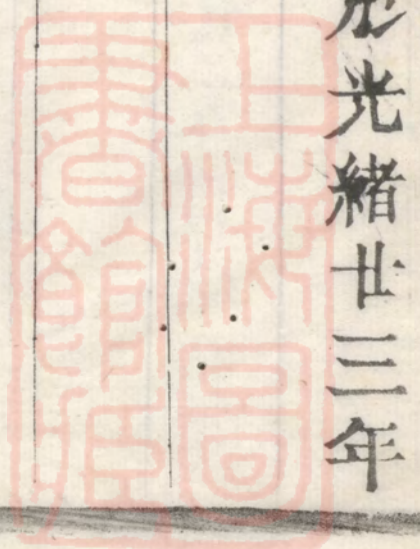 光緒廿三年
上海圖
書館藏